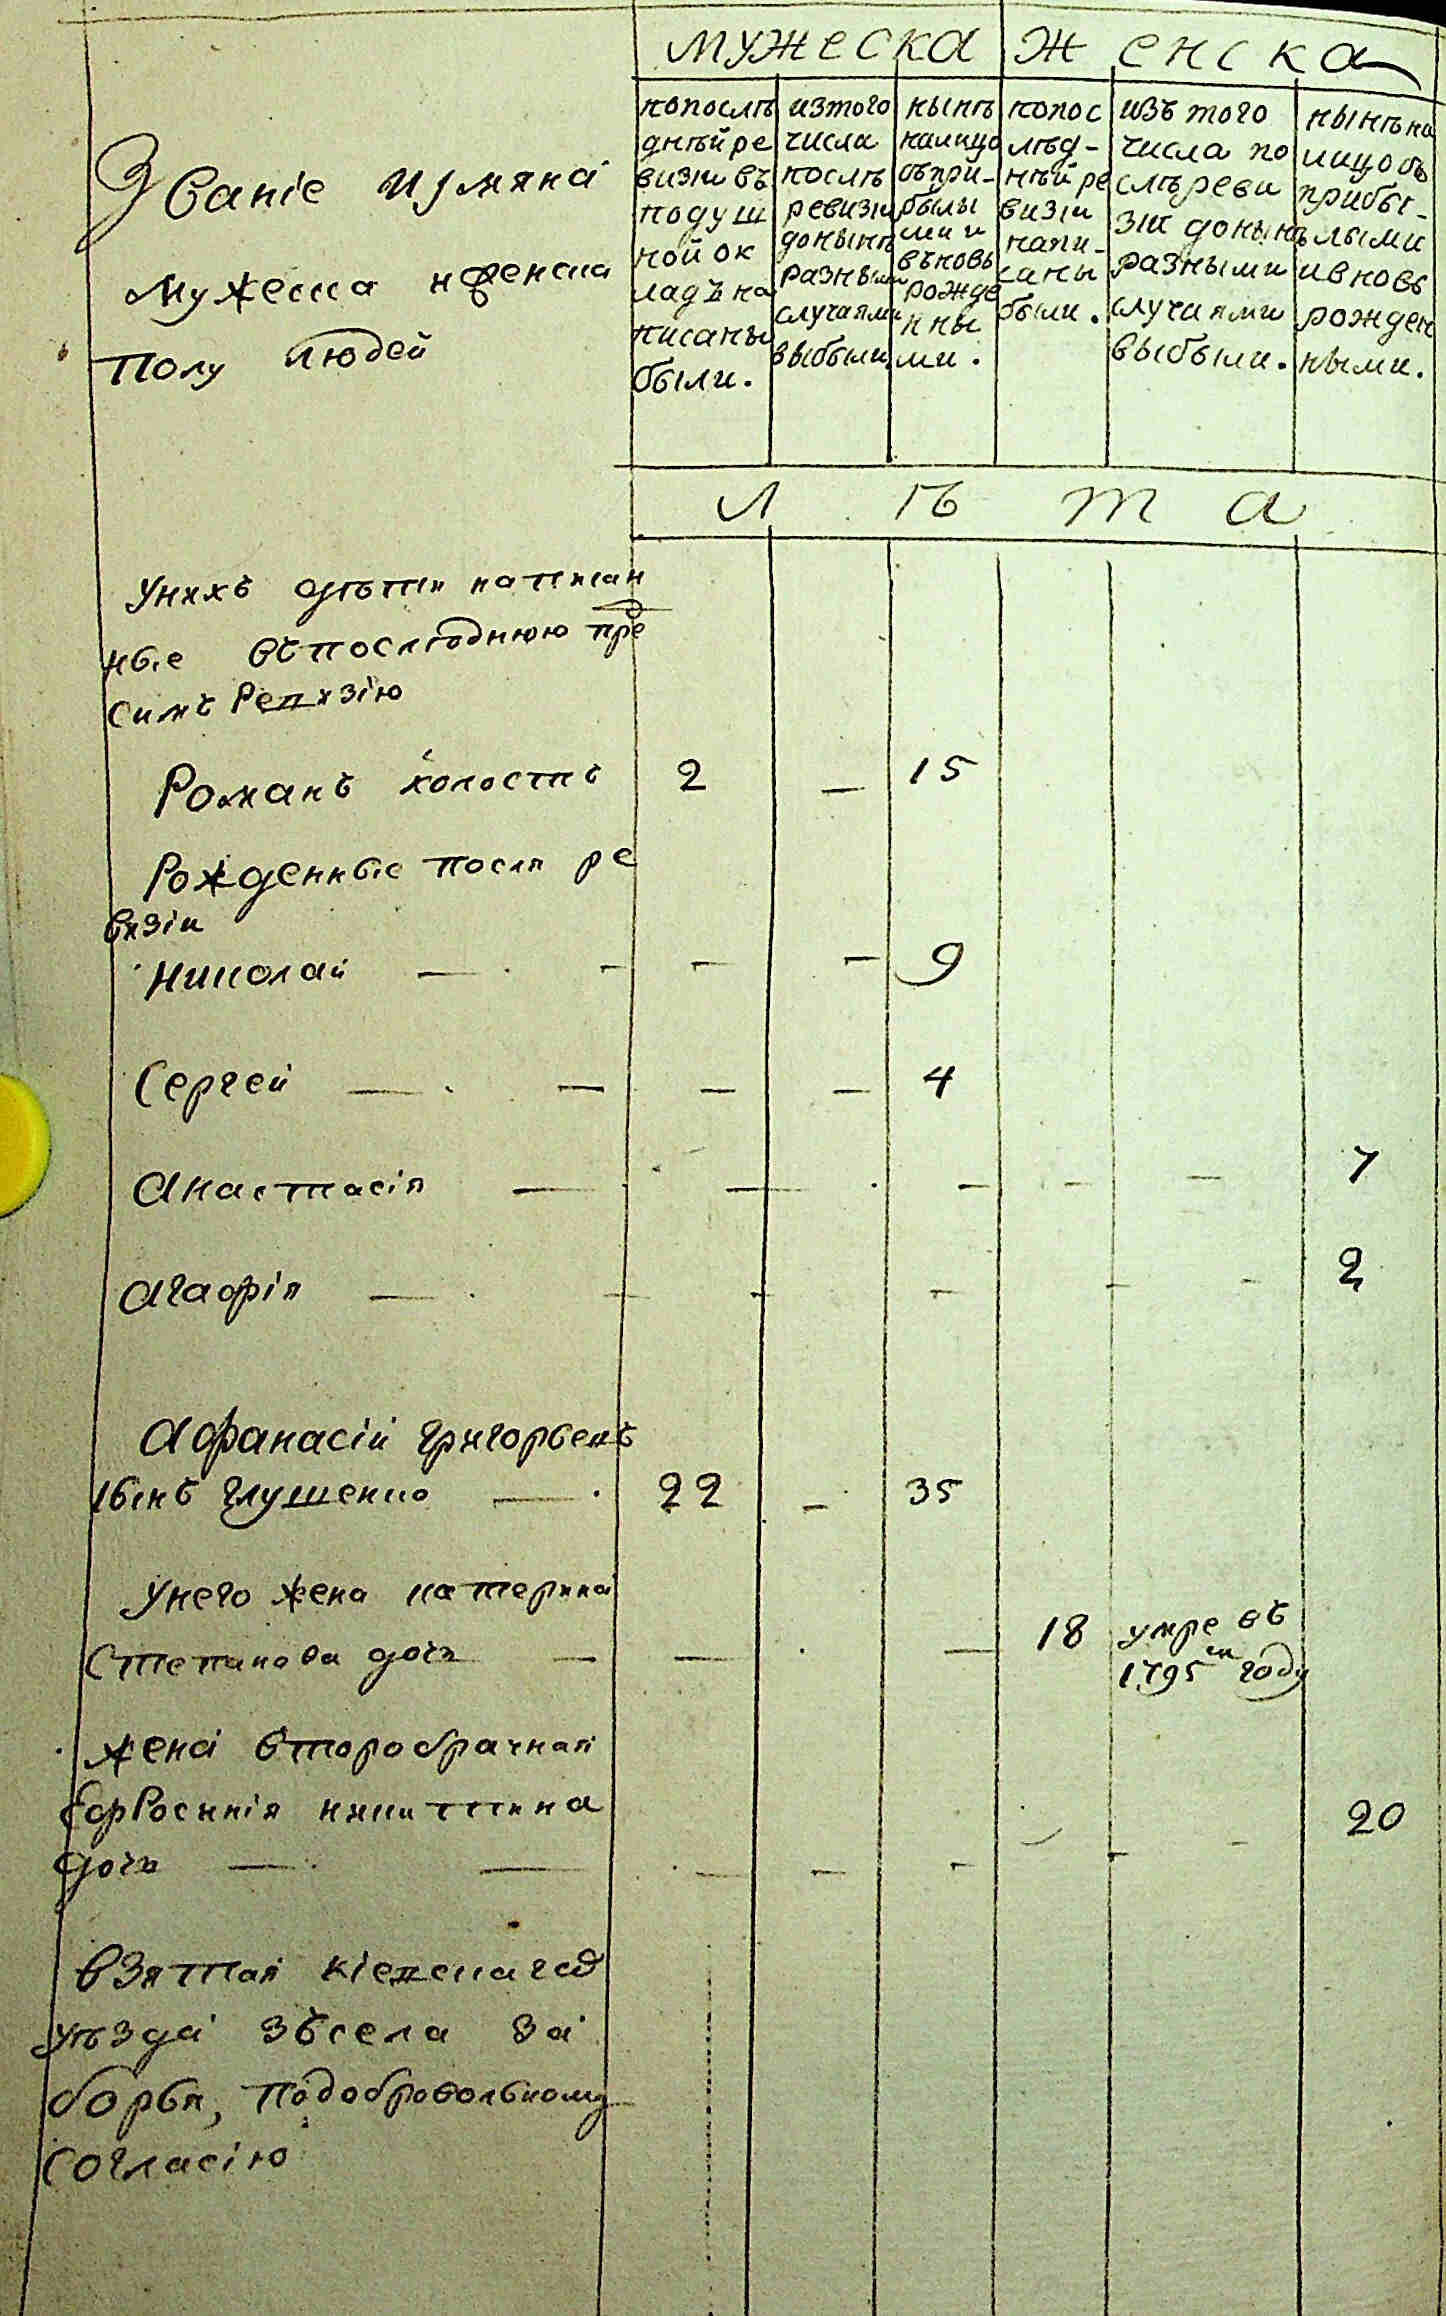 мужеска женска
Званіе и имяна
мужеска и женска
полу людей
по послѣ
дней ре
визіи въ
подуш
ной ок
ладъ на
писаны
были.
из того
числа
послѣ
ревизіи
донынѣ
разными
случаями
выбыли
нынѣ
налицо
съ при-
былы
ми и
вѣновь
рожде
нны
ми.
по пос
лѣд-
нѣй ре
визіи
напи-
саны
были.
изъ того
числа по
слѣ реви
зіи донынѣ
разными
случаями
выбыли.
нынѣ на
лицо съ
прибы-
лыми
и вновь
рожден
ными.
лѣта
У нихъ дѣти написан
ные въ последнюю пре
симъ Ревизію
Романъ холостъ 2 — 15
Рожденные посля ре
визіи
Николай — — — — 9
Сергей — — — — 4
Анастасія — — — — — 7
Агафія — — — — — — 2
Афанасій Григорьевъ
сынъ Глушенко — 22 — 35
У него жена Катерина
Степанова дочь — — — 18 умре въ
1795м году
жена второбрачная
Ефросинія Никитина
дочь — — — — — — — 20
Взятая Кіевскаго
уѣзда зъ села За
борья, по добровольному
согласію